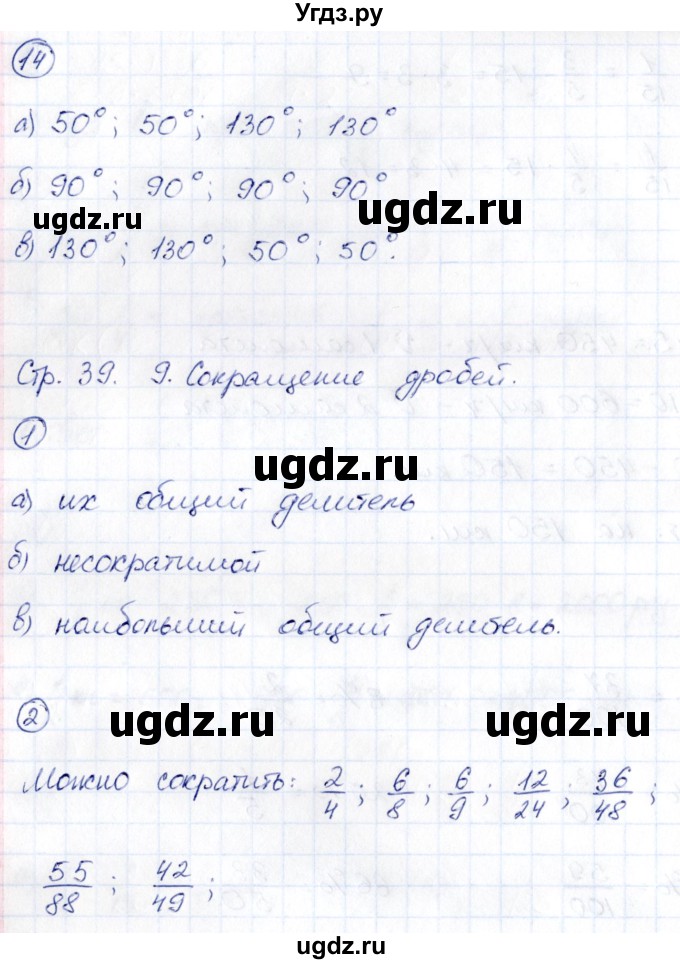 Угдз.ру
14
а) 50°; 50°; 130°; 130°
б) 90°; 90°; 90°; 90°
ugdz.ru ugdz.ru
в) 130°; 130°; 50°; 50°.
Стр. 39. 9. Сокращение дробей.
1
ugdz.ru
а) их общий делитель
б) несократимой
в) наибольший общий делитель.
2
ugdz.ru ugdz.ru
Можно сократить: 2/4; 6/8; 6/9; 12/24; 36/48;
55/88; 42/49;
ugdz.ru